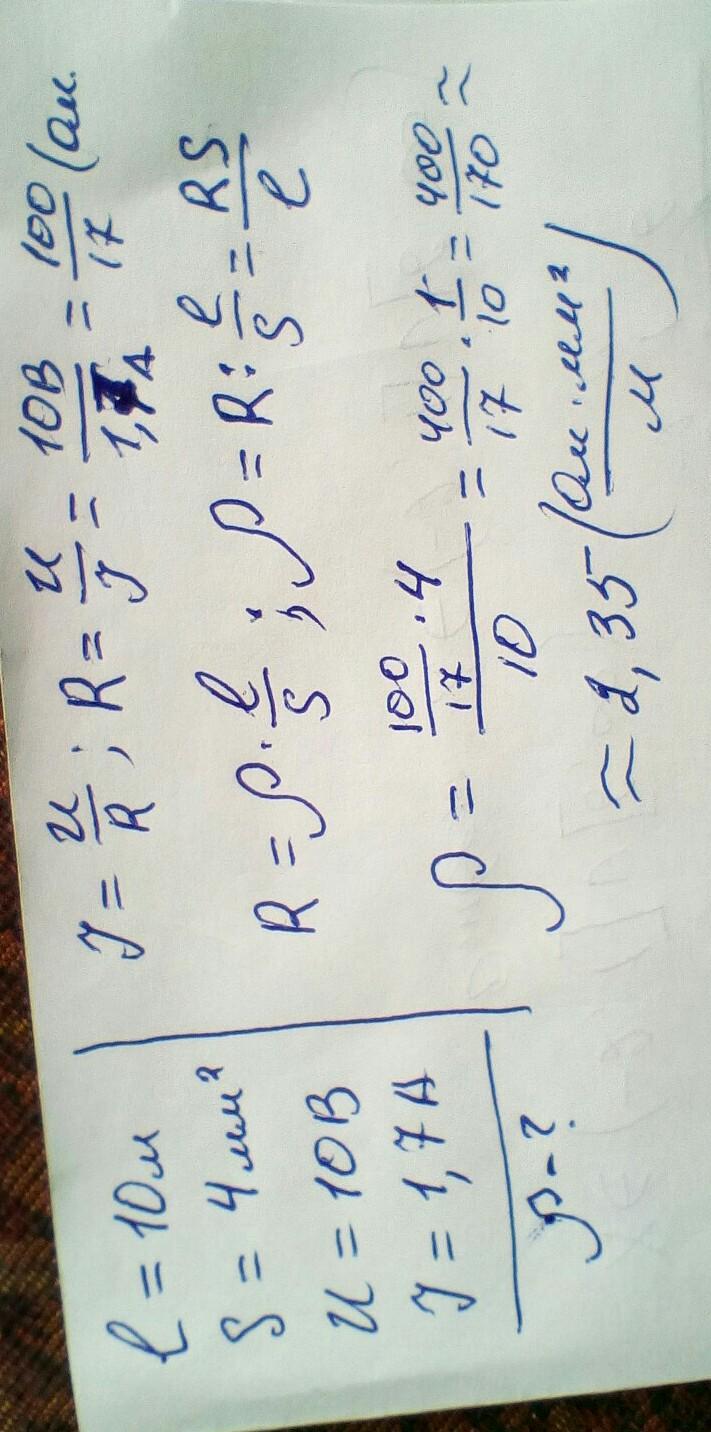 l = 10 м
S = 4 мм²
U = 10 В
I = 1,7 А
ρ - ?
I = U/R ; R = U/I = 10В/1,7А = 100/17 (Ом
R = ρ · l/S ; ρ = R : l/S = RS/l
ρ = (100/17 · 4)/10 = 400/17 · 1/10 = 400/170 ≈
≈ 2,35 (Ом · мм²/м)